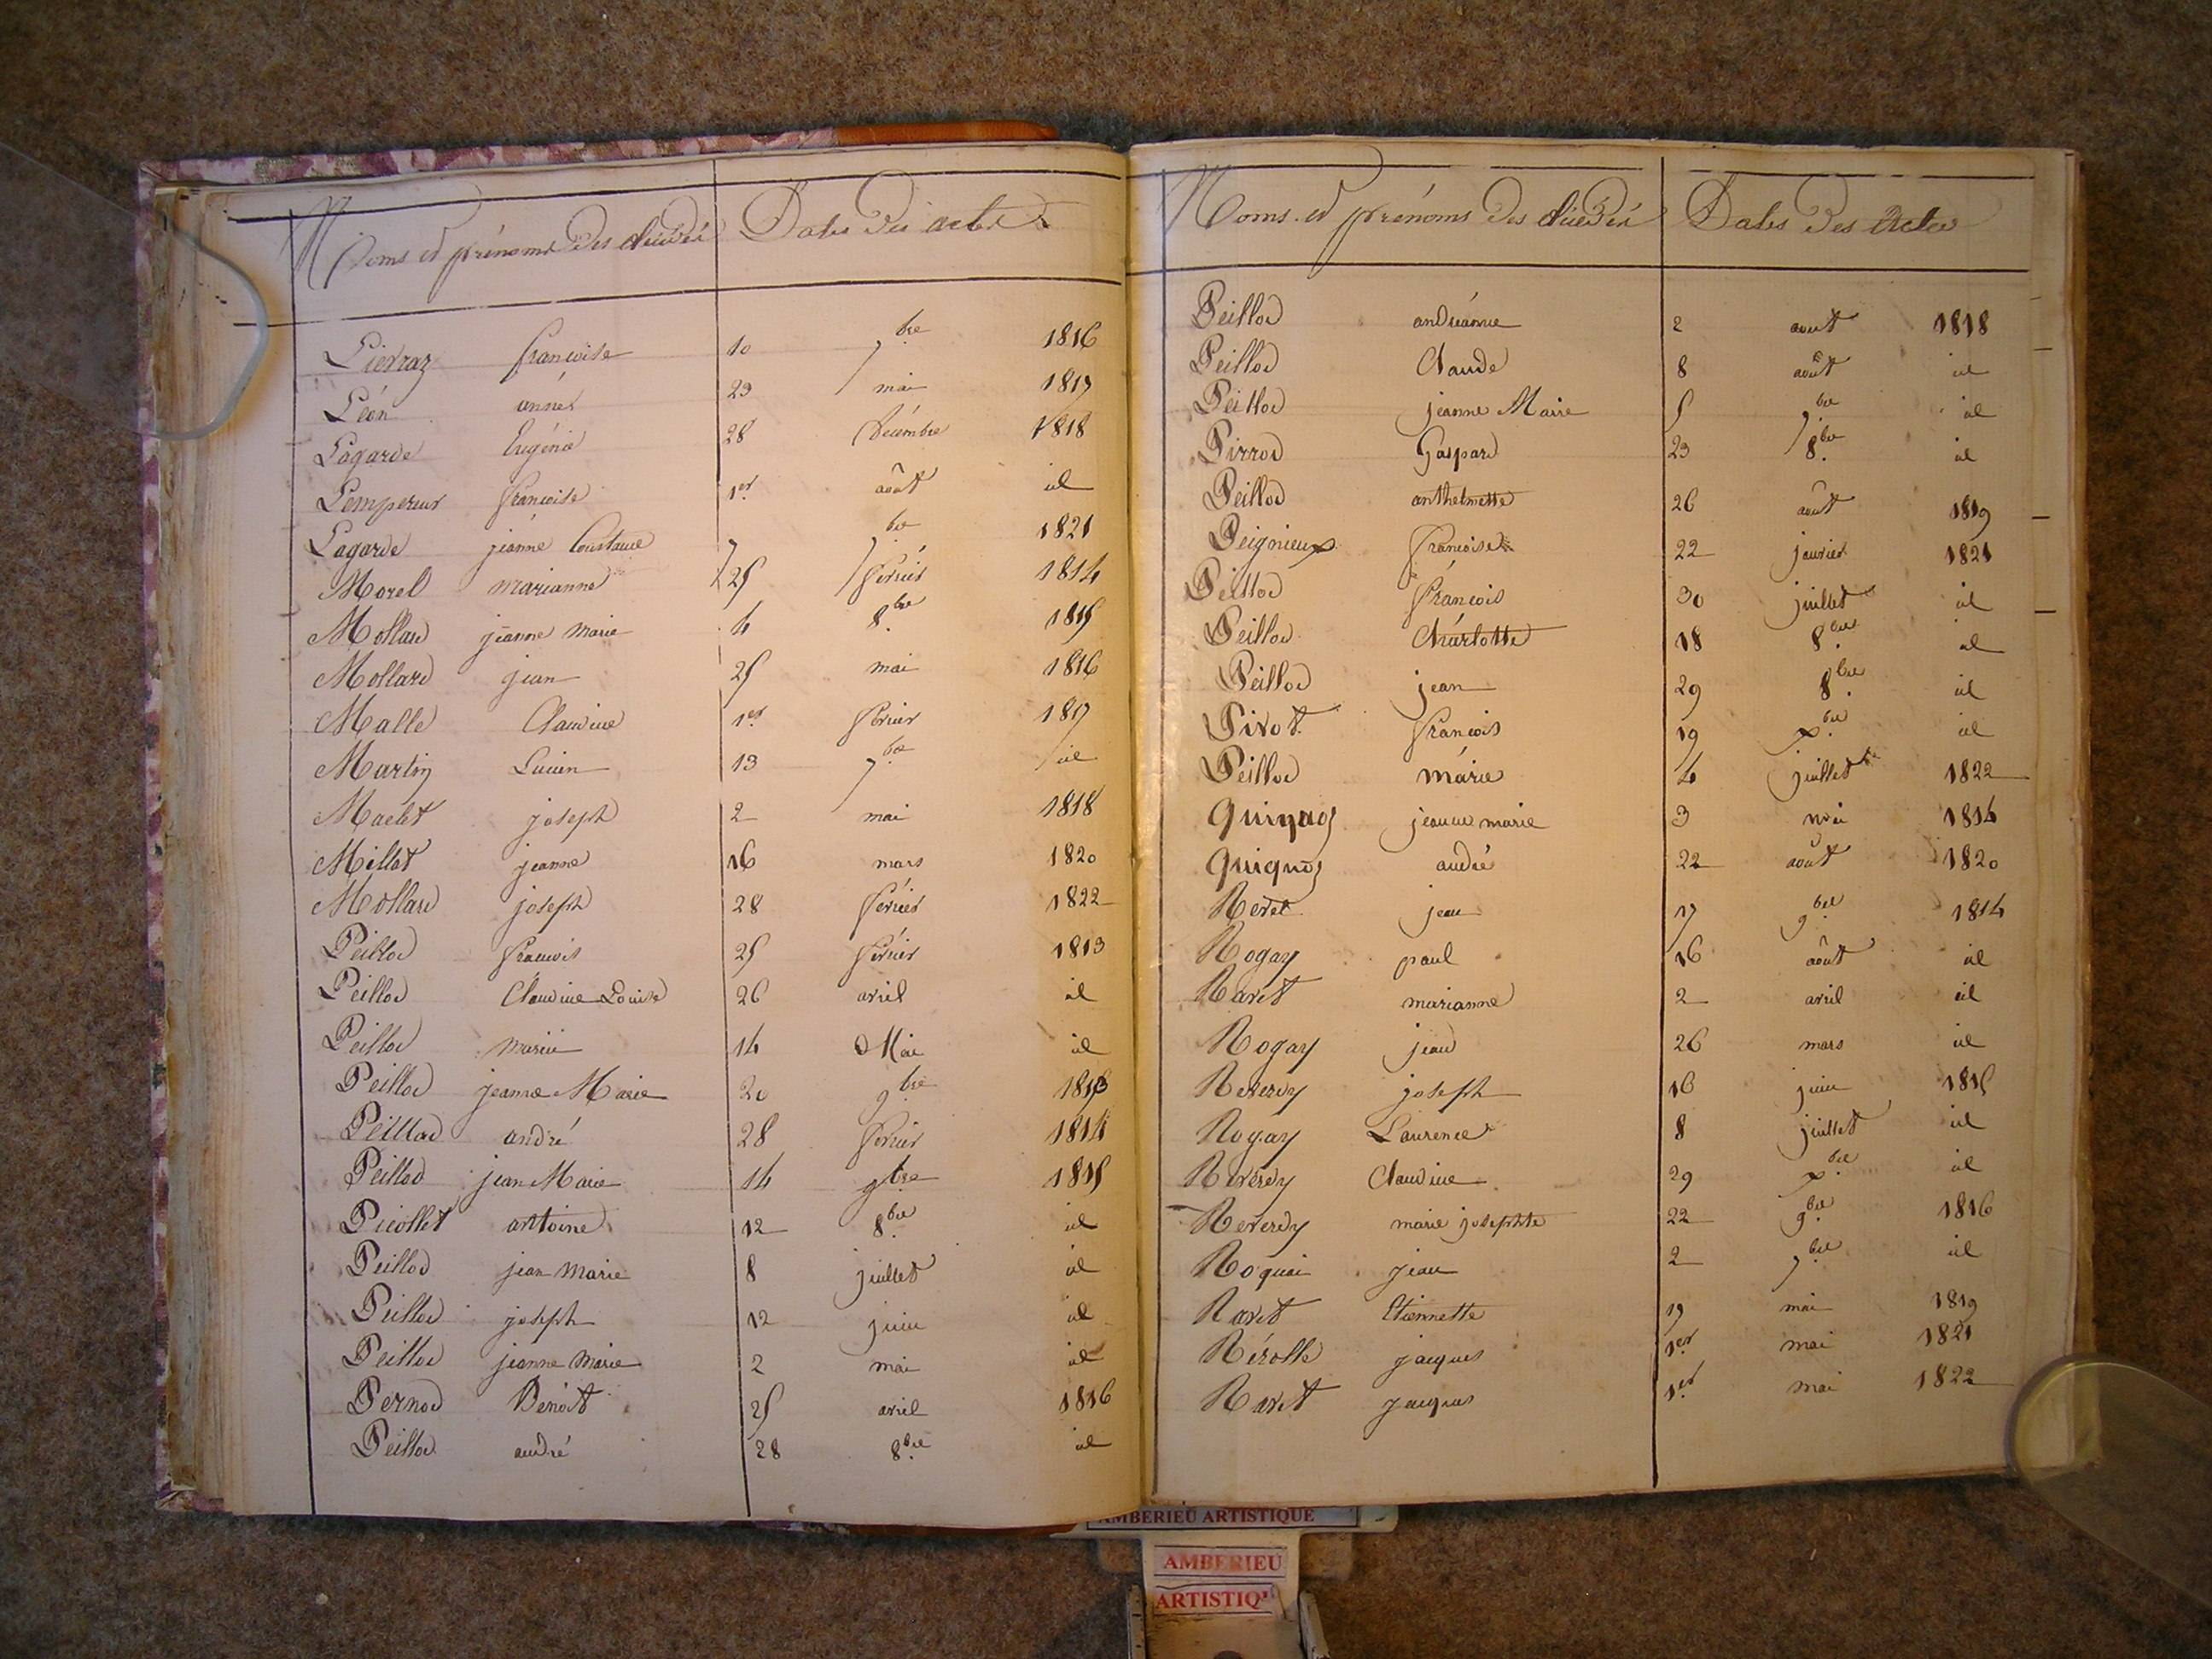 Noms et prénoms des décédés Dates des actes
Lievraz françoise 10 7bre 1816
Léon anne 23 mai 1817
Lagarde Eugénie 28 décembre 1818
Lempereur françoise 1er août id
Lagarde jeanne Constance 7 7bre 1821
Morel marianne 25 février 1814
Mollard jeanne marie 4 8bre 1815
Mollard jean 25 mai 1816
Malle Claudine 1er février 1817
Martin Lucien 13 7bre id
Maclet joseph 2 mai 1818
Millet jeanne 16 mars 1820
Mollard joseph 28 février 1822
Peillod françois 25 février 1813
Peillod Claudine Louise 26 avril id
Peillod 14 Mai id
Peillod jeanne Marie 20 9bre 1813
Peillod andré 28 février 1814
Peillod jean Marie 14 9bre 1815
Picollet antoine 12 8bre id
Peillod jean Marie 8 juillet id
Peillod joseph 12 juin id
Peillod jeanne Marie 2 mai id
Pernod Benoit 25 avril 1816
Peillod andré 28 8bre id
Noms et prénoms des décédés Dates des Actes
Peillod andréanne 2 aout 1818
Peillod Claude 8 août id
Peillod jeanne Marie 5 7bre id
Pirrod Gaspard 23 8bre id
Peillod anthelmette 26 août 1819
Peignieux françoise 22 janvier 1821
Peillod françois 30 juillet id
Peillod Charlotte 18 8bre id
Peillod jean 29 8bre id
Pivot françois 19 xbre id
Peillod marie 4 juillet 1822
Quinyaz jeanne marie 3 mai 1814
Quignoz andré 22 août 1820
Revet jean 17 9bre 1814
Rogay paul 16 août id
Ravet marianne 2 avril id
Rogay jean 26 mars id
Reverdy joseph 16 juin 1815
Rogay Laurence 8 juillet id
Reverdy Claudine 29 xbre id
Reverdy marie josephte 22 9bre 1816
Roquai jean 2 7bre id
Ravet Etiennette 19 mai 1819
Rérolle jacques 1er mai 1821
Ravet jacques 1er mai 1822
AMBERIEU ARTISTIQUE
AMBERIEU
ARTISTIQ